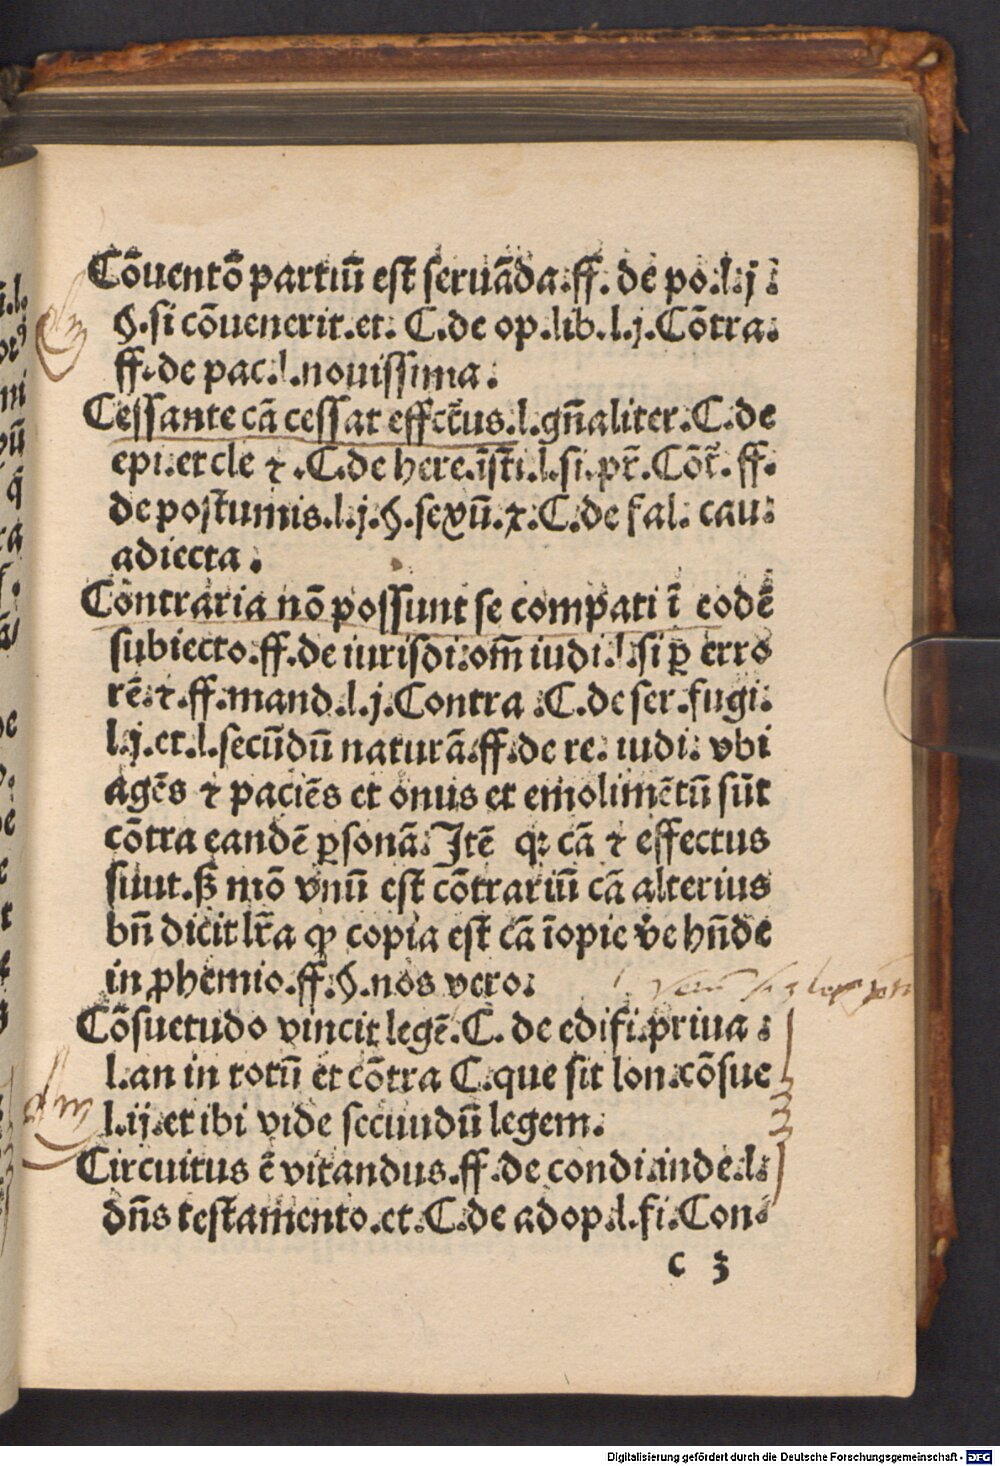 Cõuentõ partiũ est seruãda.ff. de po.l.j.
§.si cõuenerit.et. C.de op.lib.l.j.Cõtra.
ff.de pac.l.nouissima.
Cessante cã cessat effctus.l.gñaliter.C.de
epi.et cle ⁊.C.de here.ĩsti.l.si.pr̃.Cõt̃.ff.
de postumis.l.j.§.sexũ.⁊.C.de fal. cau.
adiecta.
Cõntraria nõ possunt se compati ĩ eodẽ
subiecto.ff.de iurisdi.om̃ iudi.l.si ꝑ erro
rẽ.⁊.ff.mand.l.j.Contra.C.de ser.fugi.
l.j.et.l.secũdũ naturã.ff.de re. iudi. vbi
agẽs ⁊ paciẽs et onus et emolimẽtũ sũt
cõtra eandẽ ꝑsonã.Itẽ qꝫ cã ⁊ effectus
siuut.ß mõ vnũ est cõtrariũ cã alterius
bñ dicit lr̃a ꝙ copia est cã ĩopie v̾e hñde
in ꝓhemio.ff.§.nos vero.
Cõsuetudo vincit legẽ.C. de edifi.priua.
l.an in totũ et cõtra C.que sit lon.cõsue
l.ij.et ibi vide secuudũ legem.
Circuitus ẽ vitandus.ff.de condi.inde.l.
dñs testamento.et.C.de adop.l.fi.Con.
c 3
Digitalisierung gefördert durch die Deutsche Forschungsgemeinschaft - DFG